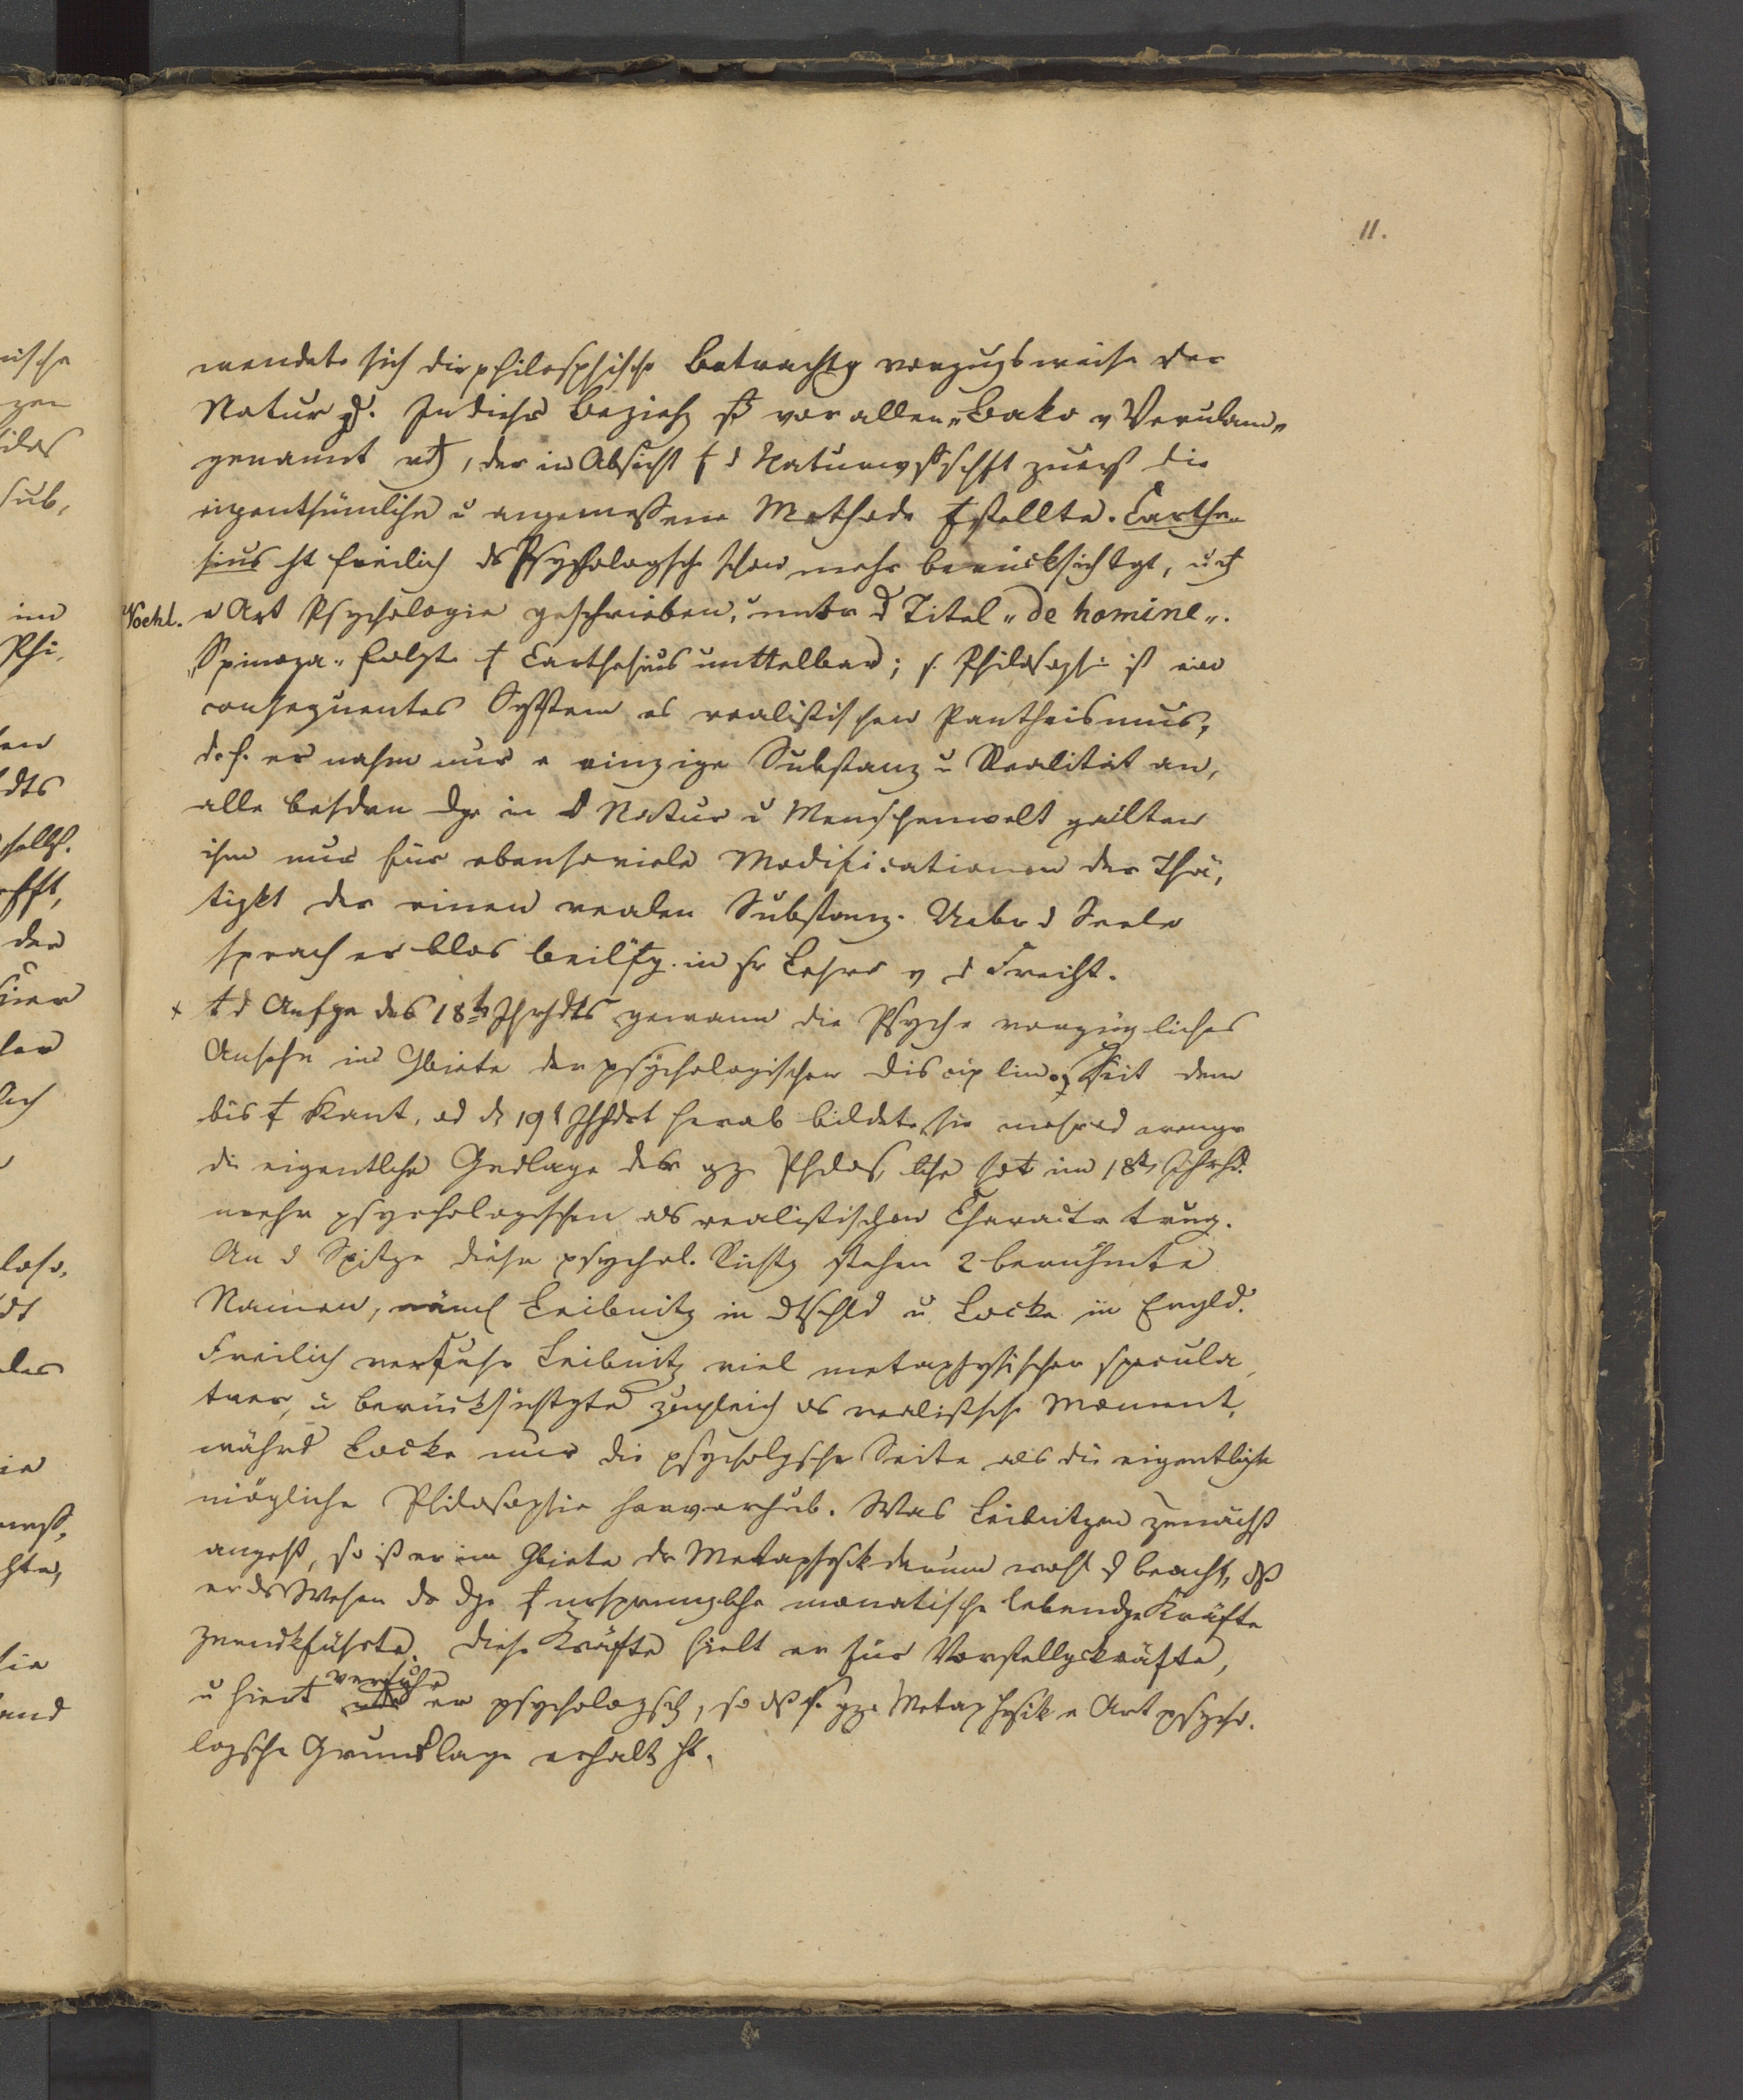 11.
wendete sich die philosphische Betrachtg vorzugsweise der
Natur zu. In dieser Beziehg vor allen „Bako v Verulam„
genannt, der in Absicht d Naturwssschft zuerst die
eigenthümliche u angemessene Methode stellte. Carthe„
sius ht freilich ds Psychologsche schon mehr berücksichtgt, u
Vochl. e Art Psychologie geschrieben, unter d Titel „de homine„.
„Spinoza„ folgte Carthesius unttelbar; s. Philosophie ist ein
consequentes System es realistischen Pantheismus,
d. h. er nahm nur e einzige Substanz u Realität an,
alle besdren Dge in d Natur u Menschenwelt geilten
ihm nur für ebensoviele Modificationen der Thä,
tigkt der einen realen Substanz. Ueber d Seele
sprach er blos beilfg. in sr Lehre v d Freiht.
d Anfge des 18ts Jhrhdts gewann die Psyche vorzügliches
Ansehn im Gbiete der psychologischen Disciplin. Seit dem
bis Kant, od ds 19t Jhhdrt herab bildete sie
die eigentlche Gndlage der gze Phlos, im 18ts Jhrhd.
mehr psychologischen als realistischen Charactr trug.
An d Spitze dieser psychol. Richtg stehen 2 berühmte
Namen, näml Leibnitz in Dtschld u Locke in Engld.
Freilich verfuhr Leibnitz viel metaphysischer specula,
tver, u berücksichtgte zugleich ds realistsche Moment,
währd Locke nur die psycholgsche Seite als die eigentlche
mögliche Philosophie hervorhub. Was Leibnitzen zunächst
angeht, so ist er im Gbiete dr Metaphysik darum wohl z beacht, dß
er ds Wesen dr Dge ursprunglche monatische lebendge Kräfte
zurückführte. Diese Kräfte hielt er für Vorstellgskräfte,
verfuhr
u hier er psychologsch, so dß s. gze Metaphysik e Art psycho.
logsche Grundlage erhalt ht.